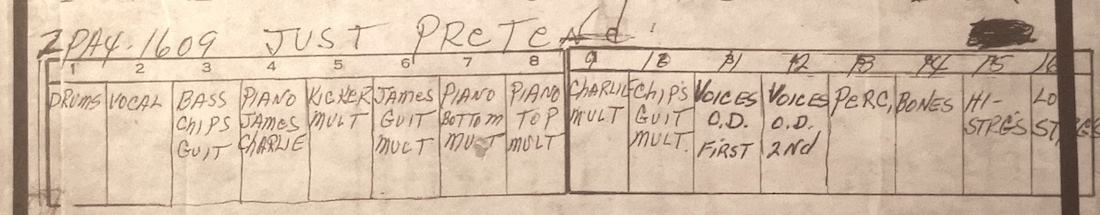 ZPA4-1609 JUST PRETEND
1 2 3 4 5 6 7 8 9 10 11 12 13 14 15 16
DRUMS VOCAL BASS PIANO KICKER JAMES PIANO PIANO CHARLIE CHIPS VOICES VOICES PERC, BONES HI- LO
CHIPS JAMES MULT GUIT BOTTOM TOP MULT GUIT O.D. O.D. STRGS STRGS
GUIT CHARLIE MULT MULT MULT MULT. FIRST 2Nd